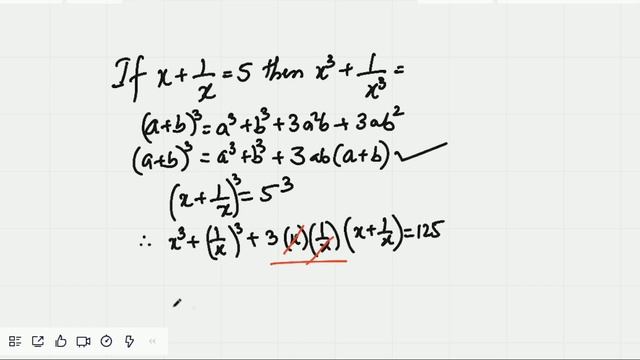 If x + 1/x = 5 then x³ + 1/x³ =
(a+b)³ = a³ + b³ + 3a²b + 3ab²
(a+b)³ = a³ + b³ + 3ab(a+b) ✓
(x + 1/x)³ = 5³
∴ x³ + (1/x)³ + 3(x)(1/x)(x + 1/x) = 125